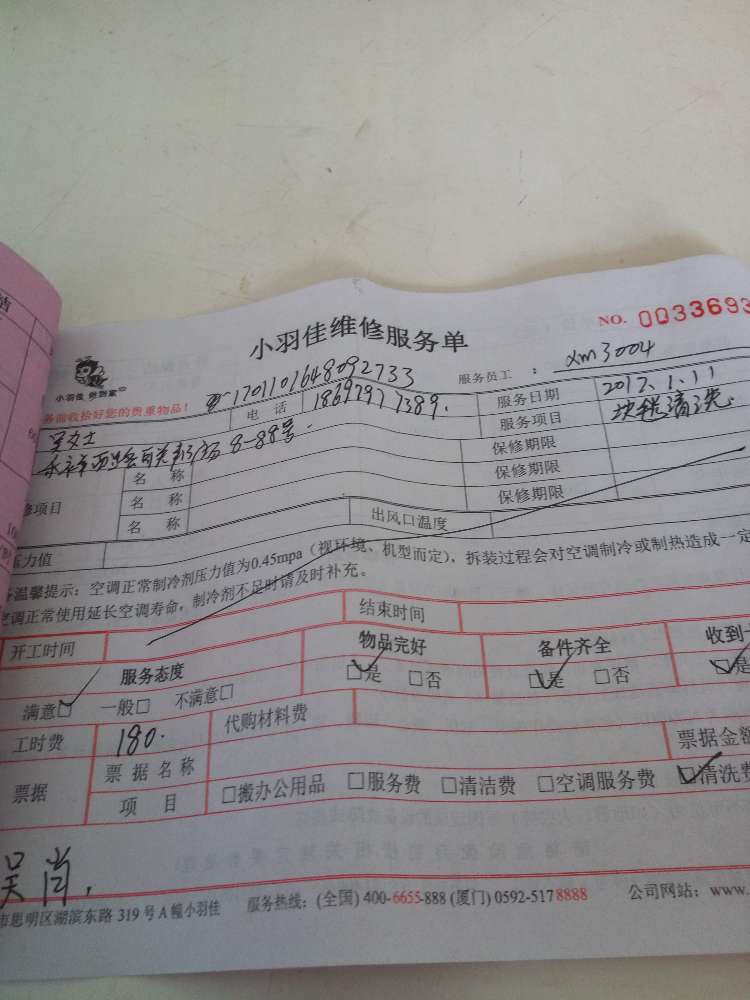 小羽佳维修服务单
NO. 0033693
小羽佳 做到家
务前收拾好您的贵重物品!
1701101648092733
服务员工 : xm3004
电 话 18697977389.
服务日期 2017.1.11
吴女士
服务项目 地毯清洗.
8-88号.
保修期限
名 称
保修期限
修项目 名 称
保修期限
名 称
出风口温度
压力值
温馨提示:空调正常制冷剂压力值为0.45mpa(视环境、机型而定),拆装过程会对空调制冷或制热造成一定
空调正常使用延长空调寿命,制冷剂不足时请及时补充。
开工时间 结束时间
服务态度 物品完好 备件齐全 收到
满意□ 一般□ 不满意□ □是 □否 □是 □否 □是
工时费 180. 代购材料费
票据 票 据 名 称 票据金额
项 目 □搬办公用品 □服务费 □清洁费 □空调服务费 □清洗费
吴肖,
市思明区湖滨东路 319 号 A 幢小羽佳 服务热线:(全国) 400-6655-888 (厦门) 0592-5178888 公司网站:www.